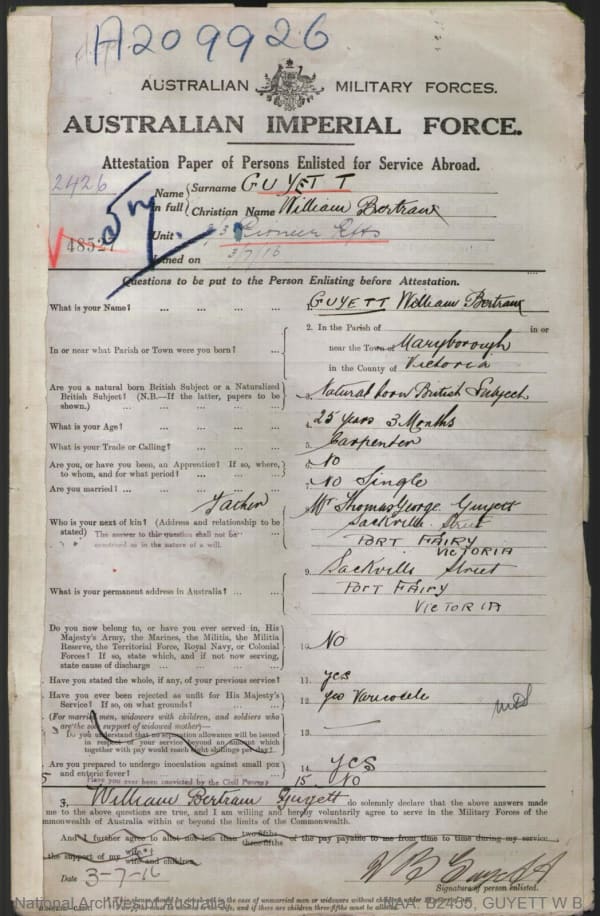 A209926
AUSTRALIAN MILITARY FORCES.
AUSTRALIAN IMPERIAL FORCE.
Attestation Paper of Persons Enlisted for Service Abroad.
2426
Name in full { Surname GUYETT
Christian Name William Bertram
48527
Unit 3 Pioneer Rfts
Joined on 3/7/16
Questions to be put to the Person Enlisting before Attestation.
What is your Name? ... ... ... ... 1. GUYETT William Bertram
In or near what Parish or Town were you born? ... 2. In the Parish of in or
near the Town of Maryborough
in the County of Victoria
Are you a natural born British Subject or a Naturalized
British Subject? (N.B.—If the latter, papers to be
shown.) ... ... ... ... 3. Natural born British Subject
What is your Age? ... ... ... ... 4. 25 years 3 Months
What is your Trade or Calling? ... ... ... 5. Carpenter
Are you, or have you been, an Apprentice? If so, where,
to whom, and for what period? ... ... ... 6. No
Are you married? ... ... ... ... 7. No Single
Father
Who is your next of kin? (Address and relationship to be
stated) The answer to this question shall not be
construed as in the nature of a will.
Mr Thomas George Guyett
Sackville Street
PORT FAIRY
VICTORIA
What is your permanent address in Australia? ... ... 9. Sackville Street
PORT FAIRY
VICTORIA
Do you now belong to, or have you ever served in, His
Majesty's Army, the Marines, the Militia, the Militia
Reserve, the Territorial Force, Royal Navy, or Colonial
Forces? If so, state which, and if not now serving,
state cause of discharge ... ... ... 10. No
Have you stated the whole, if any, of your previous service? 11. yes
Have you ever been rejected as unfit for His Majesty's
Service? If so, on what grounds? ... ... 12. yes Varicocele
(For married men, widowers with children, and soldiers who
are the sole support of widowed mother)—
Do you understand that no separation allowance will be issued
in respect of your service beyond an amount which
together with pay would reach eight shillings per day? 13. —
Are you prepared to undergo inoculation against small pox
and enteric fever? ... ... ... 14. yes
15 Have you ever been convicted by the Civil Power? 15 No
3. William Bertram Guyett do solemnly declare that the above answers made
me to the above questions are true, and I am willing and hereby voluntarily agree to serve in the Military Forces of the
mmonwealth of Australia within or beyond the limits of the Commonwealth.
And I further agree to allot not less than two-fifths three-fifths of the pay payable to me from time to time during my service
the support of my wife wife and children.
Date 3-7-16
W B Guyett
Signature of person enlisted.
National Archives of Australia
NAA: B2455, GUYETT W B